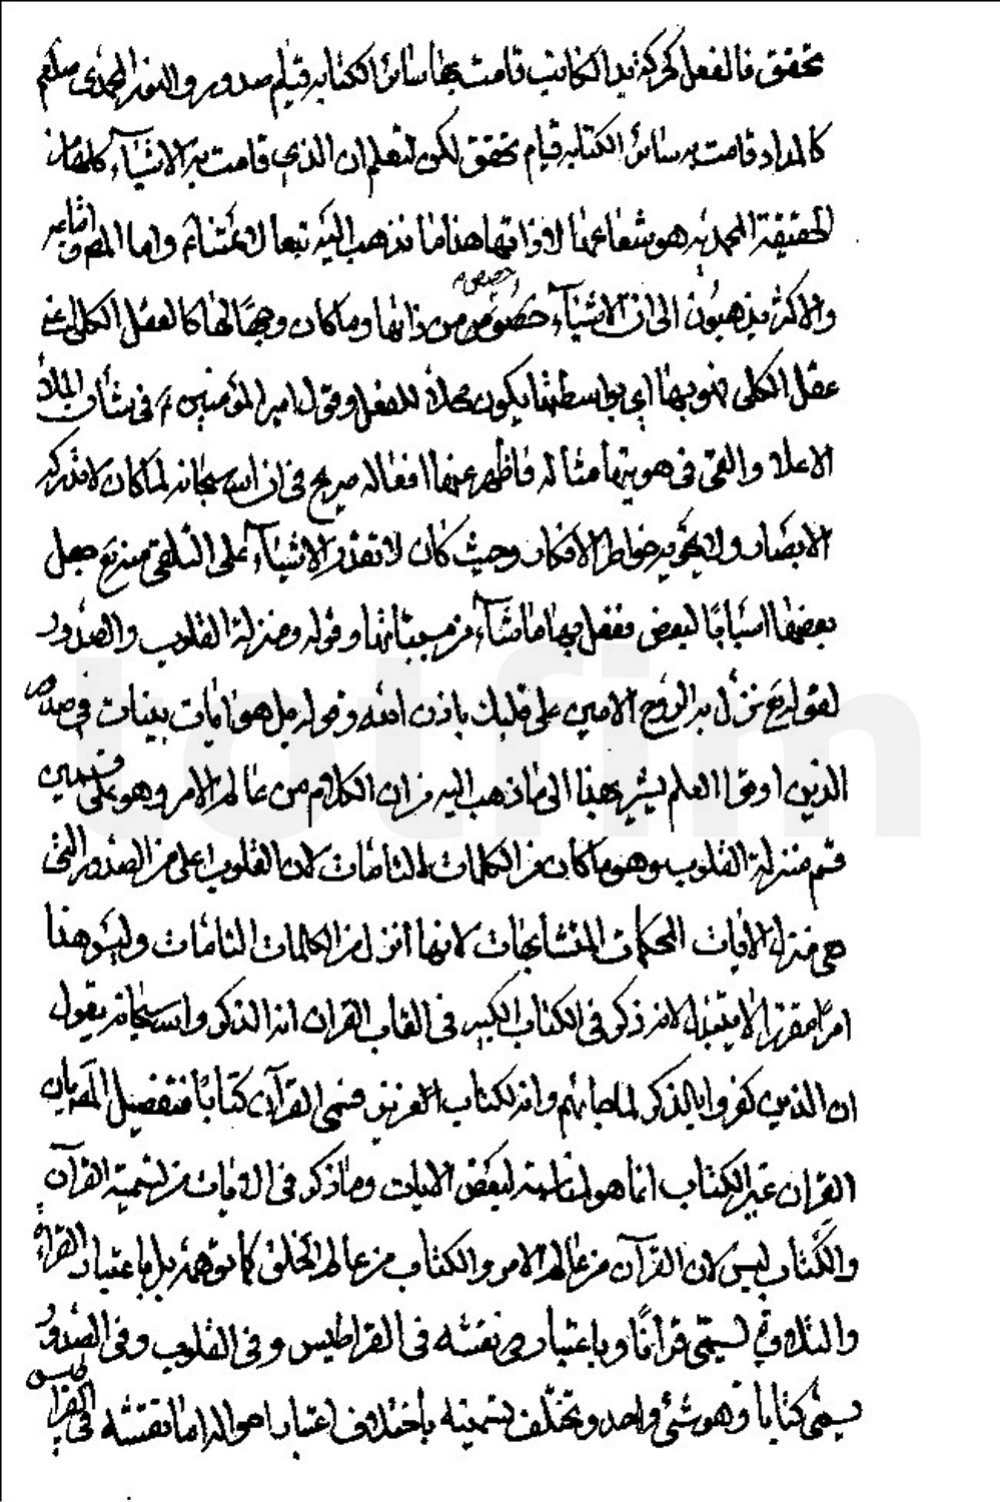 تحقق فالفعل كحركة يد الكاتب قامت بها سائر الكتابة قيام صدور والنور المحمدى صلعم
كالمداد قامت به سائر الكتابة قيام تحقق لكن لتعلم ان الذي قامت به الاشياء كلها من
الحقيقة المحمدية هو شعاعها لا ذاتها هذا ما نذهب اليه تبعا لائمتنا ع واما المص واتباعه
والاكثر يذهبون الى ان الاشياء حصص من ذاتها وما كان وجها لها كالعقل الكلى اعنى
عقل الكلى فهو بها اي بواسطتها يكون محلا للفعل وقول امير المؤمنين ع فى شأن الملأ
الاعلا والقى فى هويتها مثاله فاظهر عنها افعاله صريح فى ان الله سبحانه لما كان لا تدركه
الابصار ولا تحويه خواطر الافكار وحيث كان لا تقدر الاشياء على التلقى منه تع جعل
بعضها اسبابا لبعض ففعل بها ما شاء من مسبباتها وقوله ومنزلة القلوب والصدور
لقوله تع نزل به الروح الامين على قلبك باذن الله وقوله بل هو ايات بينات فى صدور
الذين اوتوا العلم يشير بهذا الى ما ذهب اليه من ان الكلام من عالم الامر وهو على قسمين
قسم منزلة القلوب وهو ما كان من الكلمات التامات لان القلوب اعلى من الصدور التى
هى منزلة الايات المحكمات المتشابهات لانها انزل من الكلمات التامات وليس هذا
امرا مقررا لا يتبدل لانه ذكر فى الكتاب الكبير فى القاب القران انه الذكر والله سبحانه يقول
ان الذين كفروا بالذكر لما جائهم وانه لكتاب عزيز فسمى القرآن كتابا فتفصيل المص بان
القران غير الكتاب انما هو لمناسبة لبعض الايات وما ذكر فى الايات من تسمية القرآن
والكتاب ليس لان القرآن من عالم الامر والكتاب من عالم الخلق كما توهمه بل باعتبار القراءة
والتلاوة يسمى قرانا وباعتبار نقشه فى القراطيس وفى القلوب وفى الصدور
يسمى كتابا وهو شئ واحد وتختلف تسميته باختلاف اعتبار احواله اما نقشه فى القراطيس